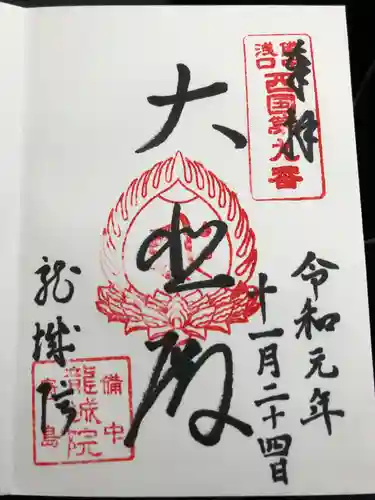 奉拝
備中
浅口
西国第九番
令和元年
十一月二十四日
大悲殿
龍城院
備中
龍城院
島